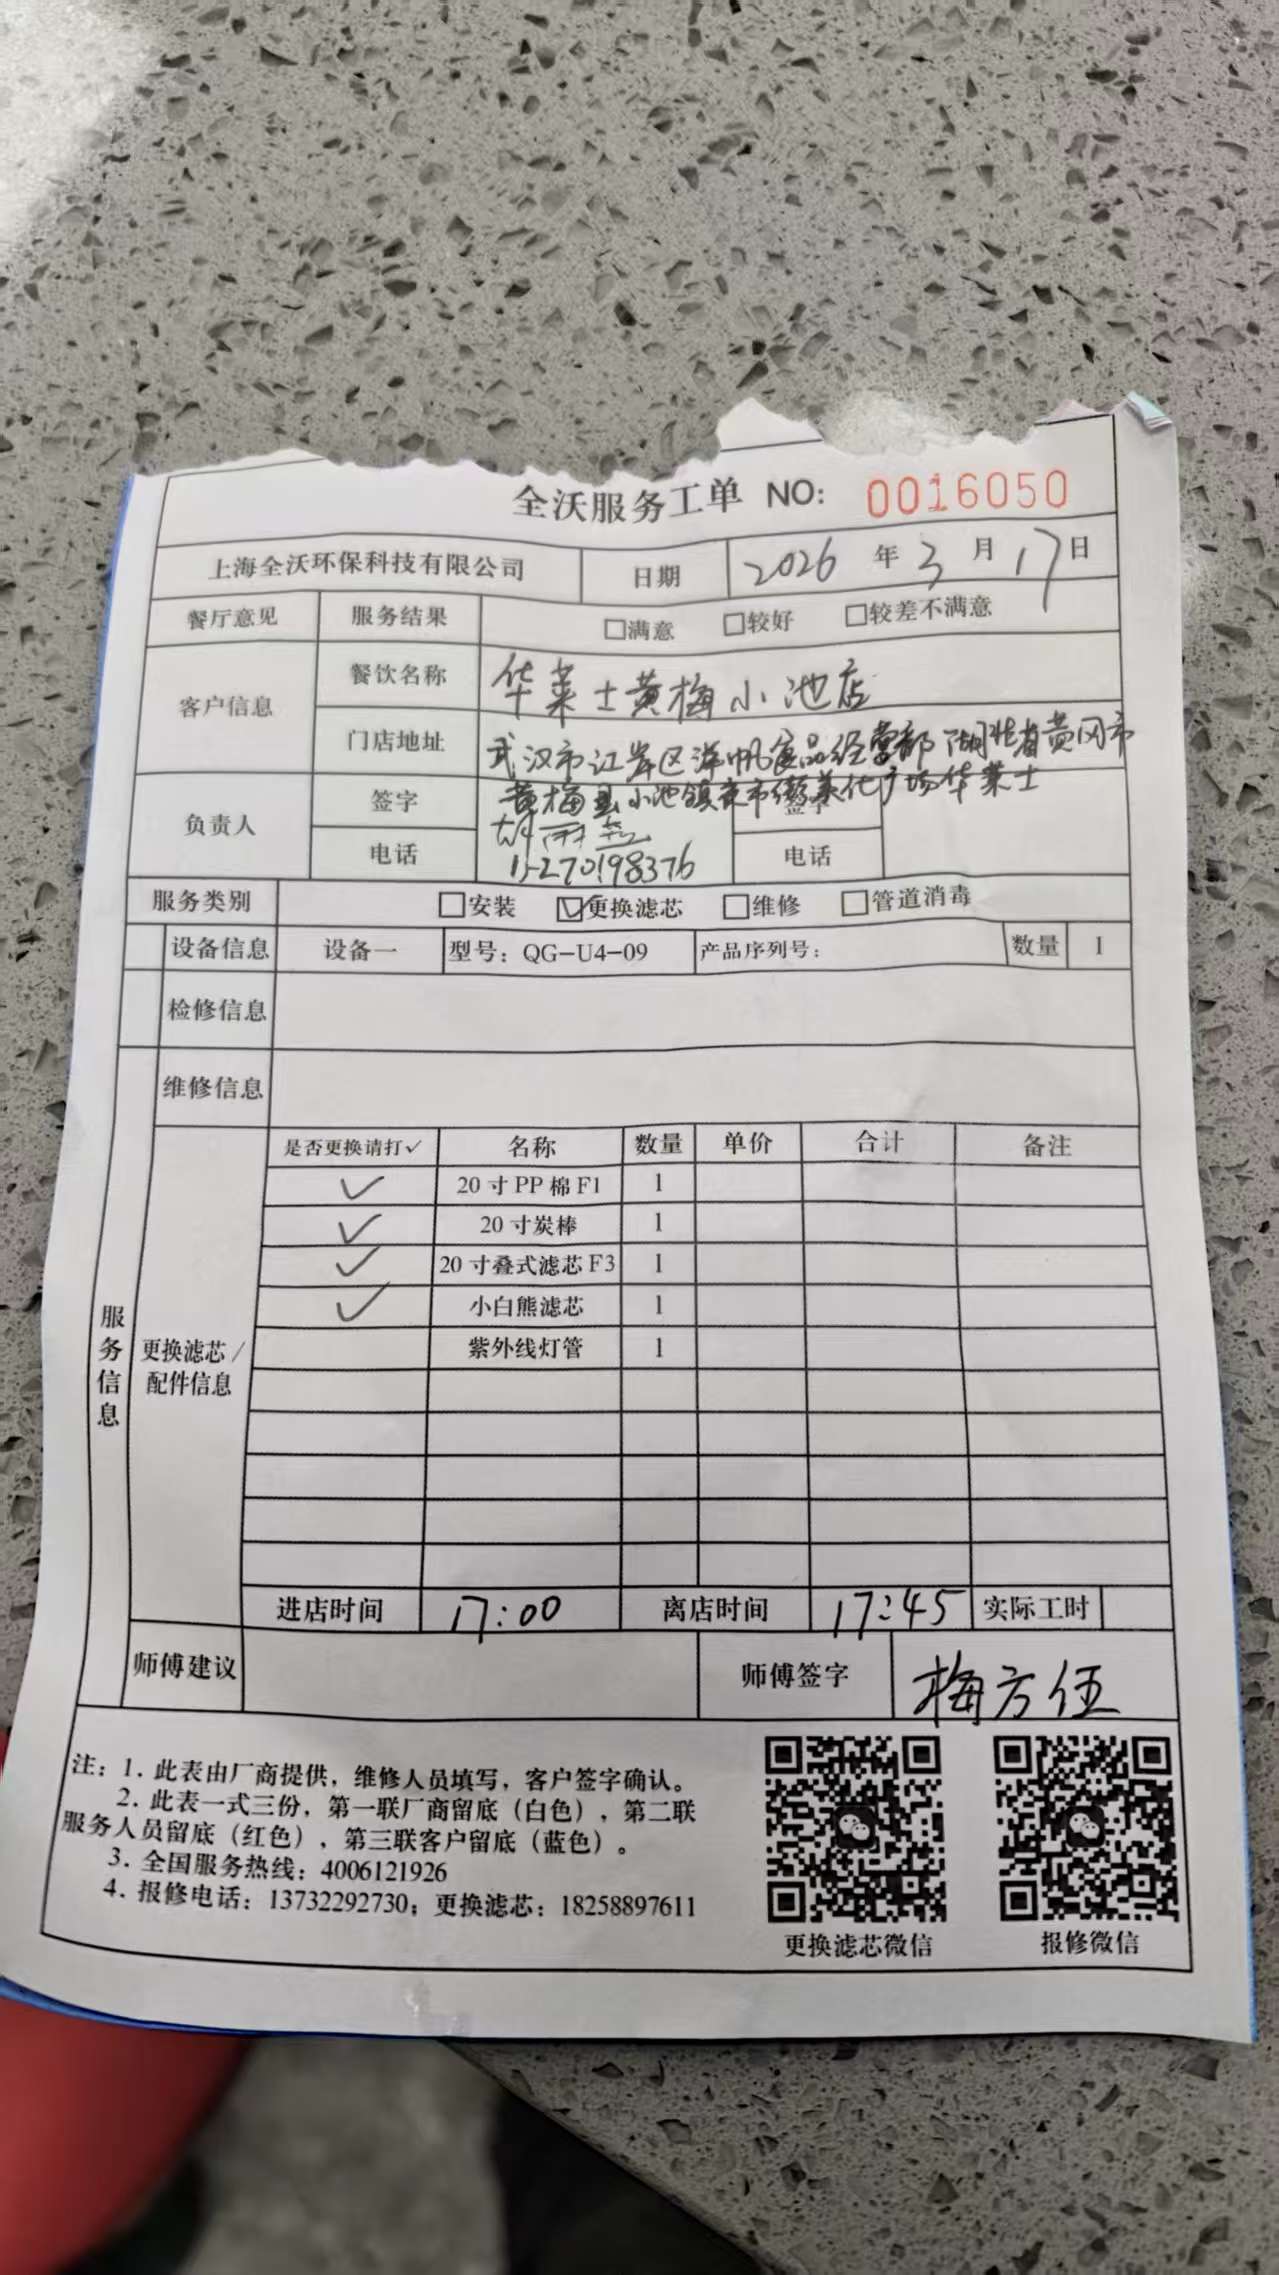 全沃服务工单 NO: 0016050
上海全沃环保科技有限公司 日期 2026 年 3 月 17 日
餐厅意见 服务结果 □满意 □较好 □较差不满意
客户信息 餐饮名称 华莱士黄梅小池店
门店地址 武汉市江岸区洋帆食品经营部 湖北省黄冈市
黄梅县小池镇夜市街美化广场华莱士
负责人 签字 胡雨 签字
电话 15270198376 电话
服务类别 □安装 ☑更换滤芯 □维修 □管道消毒
设备信息 设备一 型号：QG-U4-09 产品序列号： 数量 1
检修信息
维修信息
服务信息
更换滤芯／配件信息
是否更换请打✓ 名称 数量 单价 合计 备注
✓ 20寸PP棉F1 1
✓ 20寸炭棒 1
✓ 20寸叠式滤芯F3 1
✓ 小白熊滤芯 1
紫外线灯管 1
进店时间 17:00 离店时间 17:45 实际工时
师傅建议 师傅签字 梅方伍
注：1. 此表由厂商提供，维修人员填写，客户签字确认。
2. 此表一式三份，第一联厂商留底（白色），第二联
服务人员留底（红色），第三联客户留底（蓝色）。
3. 全国服务热线：4006121926
4. 报修电话：13732292730；更换滤芯：18258897611
更换滤芯微信 报修微信